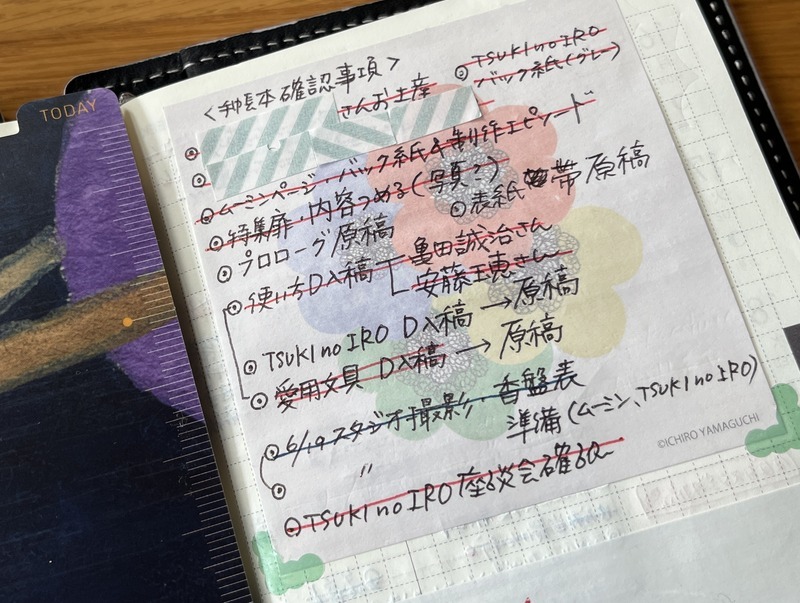 TODAY
<手帳本確認事項>
TSUKI no IRO
バック紙(グレー)
さんお土産
ムーミンページ・バック紙&制作エピソード
特集扉・内容つめる(写真?)
表紙 帯原稿
プロローグ原稿
使い方D入稿 亀田誠治さん
安藤玉恵さん
TSUKI no IRO D入稿→原稿
愛用文具 D入稿→原稿
6/19 スタジオ撮影・香盤表
〃 準備(ムーミン、TSUKI no IRO)
TSUKI no IRO 座談会確認
©ICHIRO YAMAGUCHI